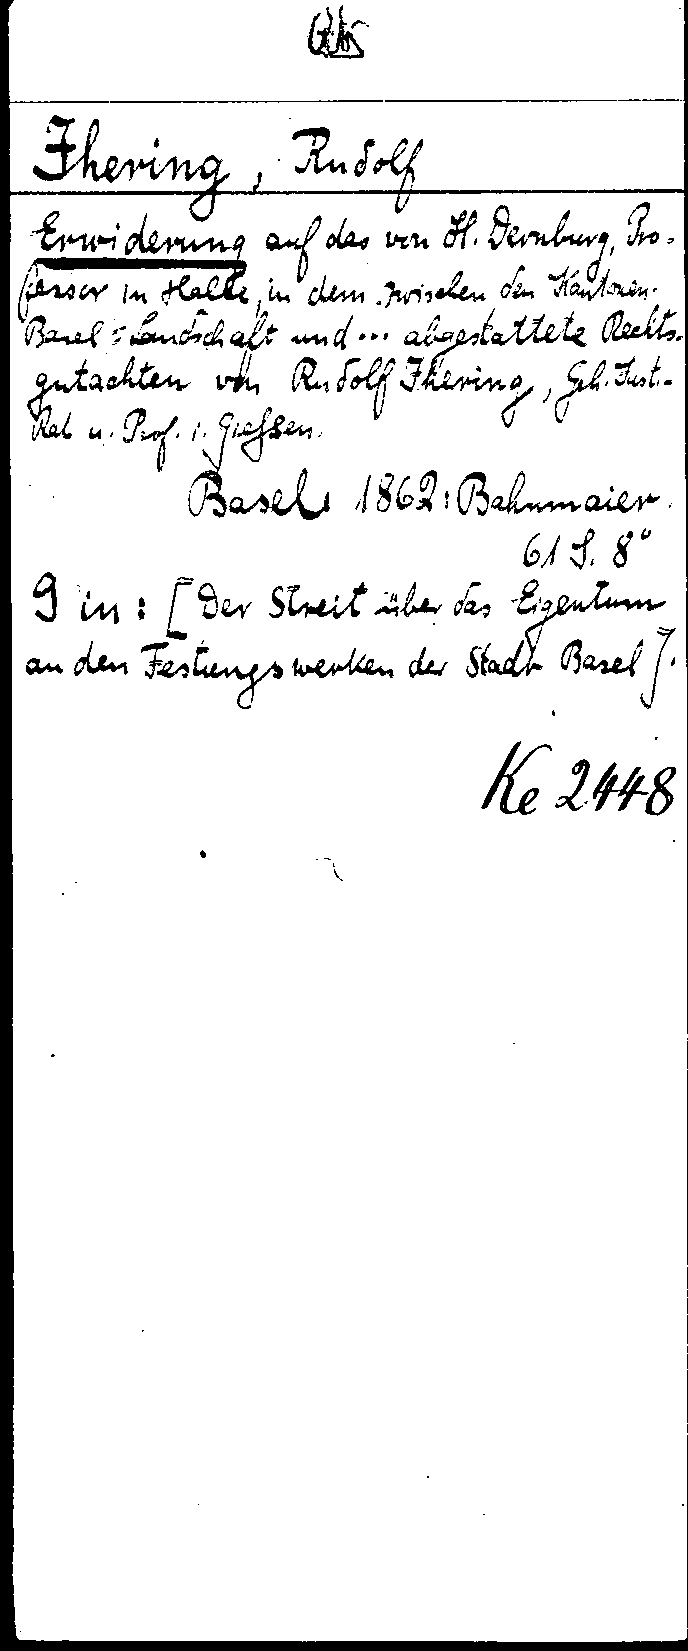 Ihering, Rudolf
Erwiderung auf das von H. Dernburg, Pro-
fessor in Halle, in dem zwischen den Kantonen
Basel=Landschaft und ... abgestattete Rechts-
gutachten von Rudolf Ihering, Geh. Just.-
Rat u. Prof. i. Giessen.
Basel: 1862: Bahnmaier.
61 S. 8°
9 in: [Der Streit über das Eigentum
an den Festungswerken der Stadt Basel].
Ke 2448